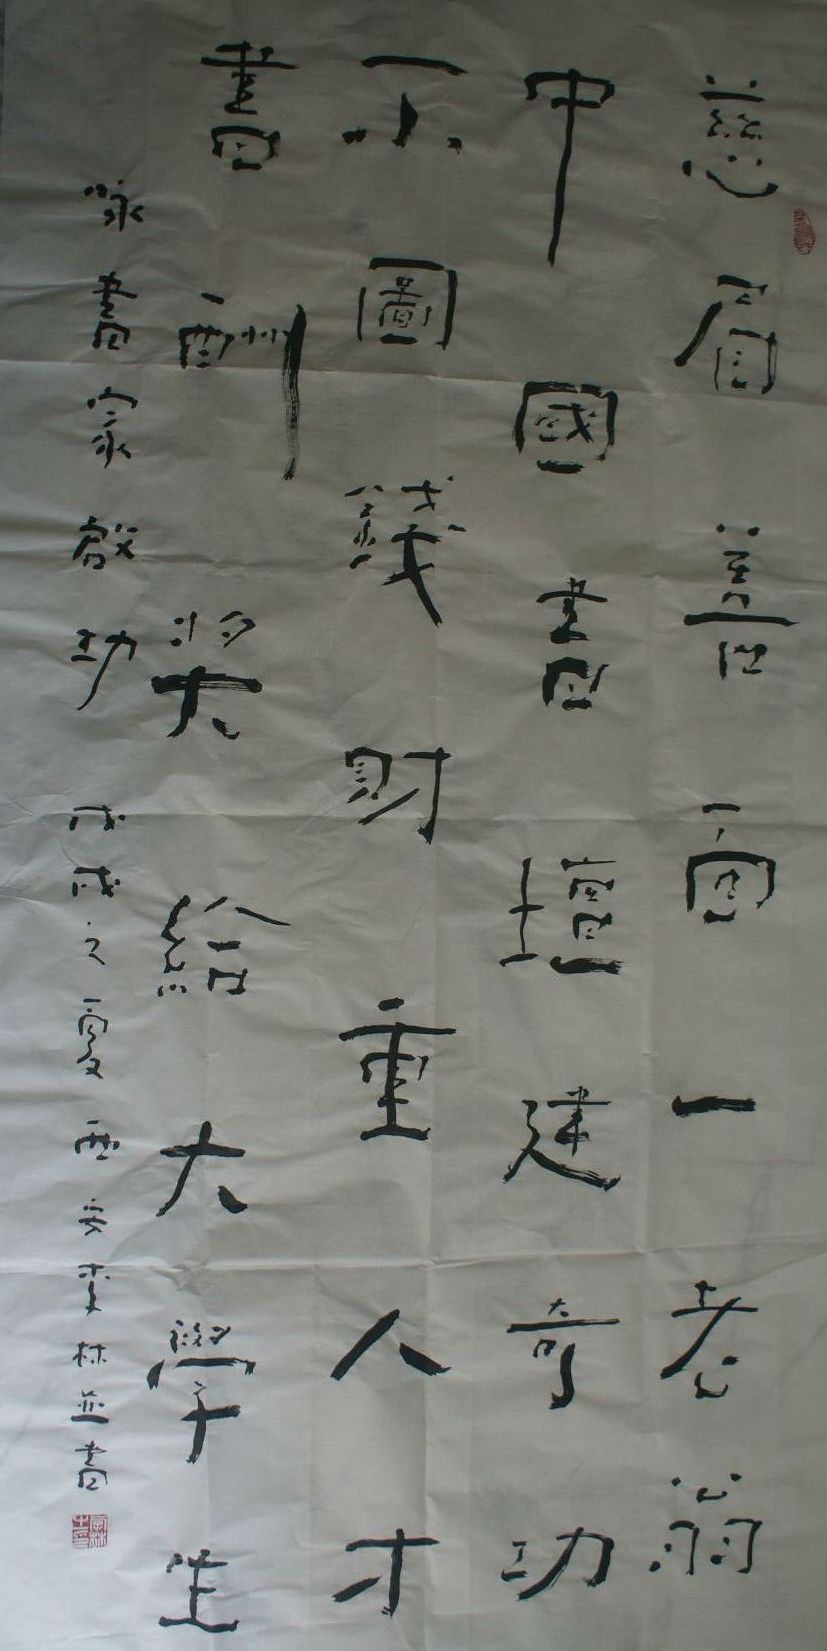 慈眉善面一老翁
中國書壇建奇功
不圖錢財重人才
書酬奖給大學生
咏書家啟功 戊戌之夏西安李林並書